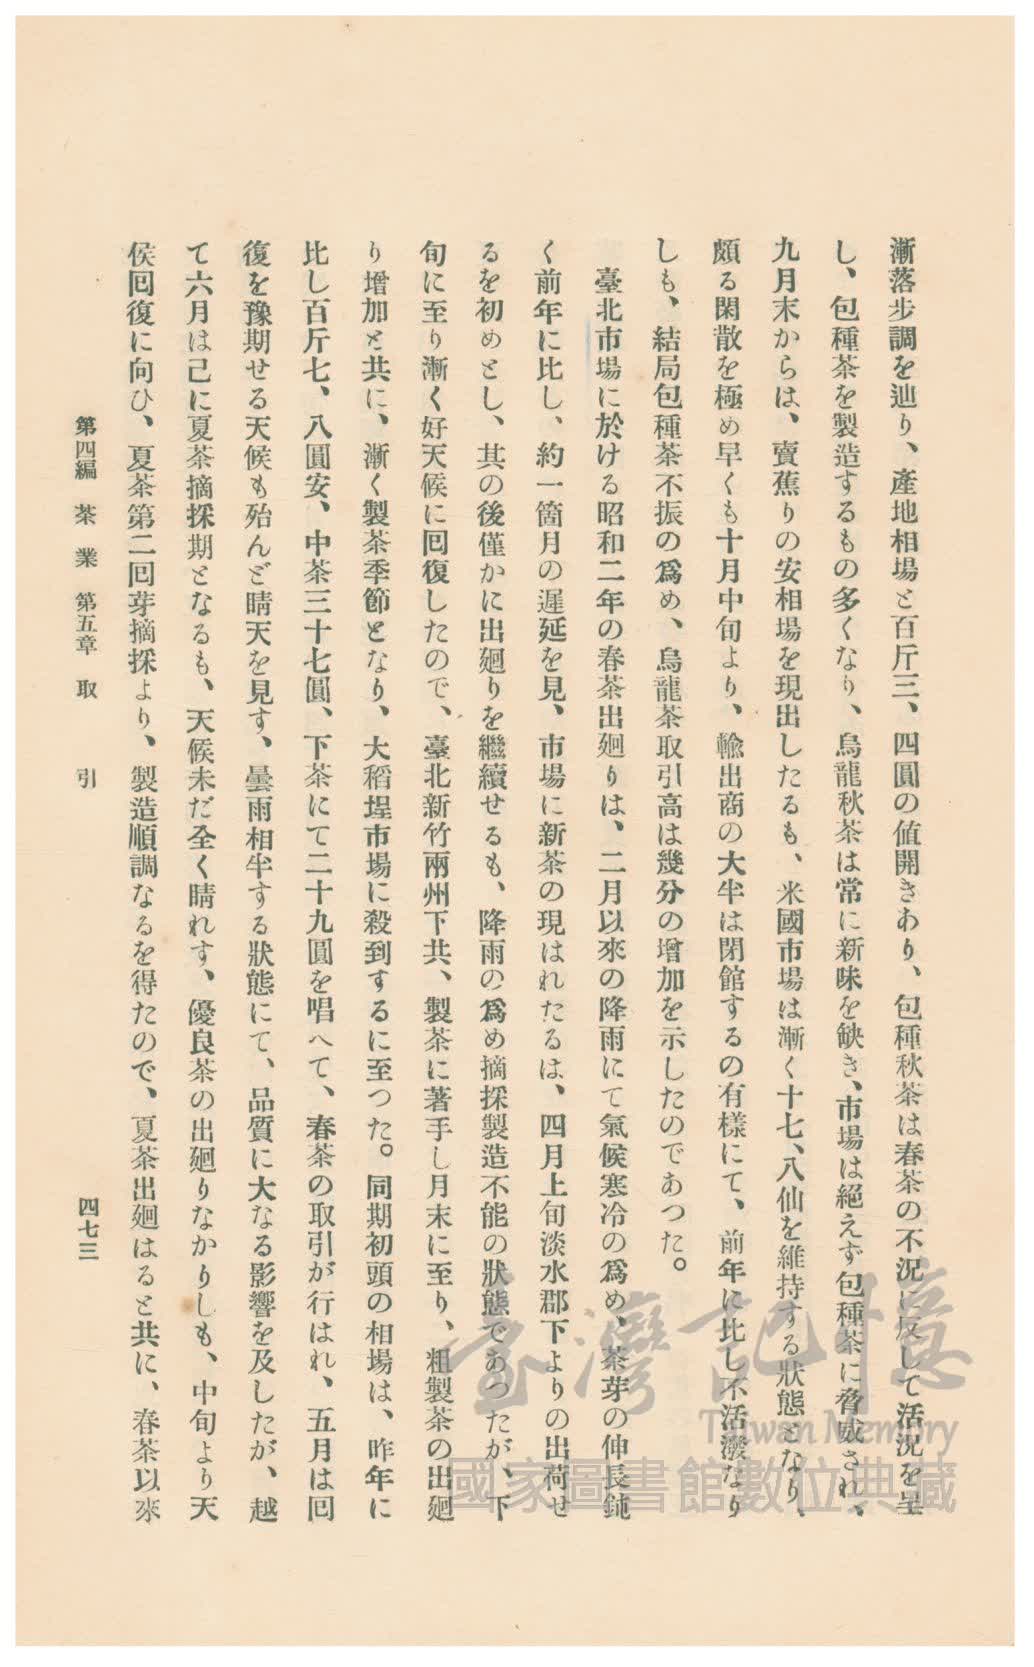 漸落步調を辿り、產地相場と百斤三、四圓の値開きあり、包種秋茶は春茶の不況に反して活況を呈
し、包種茶を製造するもの多くなり、烏龍秋茶は常に新味を缺き、市場は絕えず包種茶に脅威され、
九月末からは、賣蕉りの安相場を現出したるも、米國市場は漸く十七、八仙を維持する狀態となり、
頗る閑散を極め早くも十月中旬より、輸出商の大半は閉館するの有樣にて、前年に比し不活潑なり
しも、結局包種茶不振の爲め、烏龍茶取引高は幾分の增加を示したのであつた。
臺北市場に於ける昭和二年の春茶出廻りは、二月以來の降雨にて氣候寒冷の爲め、茶芽の伸長鈍
く前年に比し、約一箇月の遲延を見、市場に新茶の現はれたるは、四月上旬淡水郡下よりの出荷せ
るを初めとし、其の後僅かに出廻りを繼續せるも、降雨の爲め摘採製造不能の狀態であつたが、下
旬に至り漸く好天候に回復したので、臺北新竹兩州下共、製茶に著手し月末に至り、粗製茶の出廻
り增加と共に、漸く製茶季節となり、大稻埕市場に殺到するに至つた。同期初頭の相場は、昨年に
比し百斤七、八圓安、中茶三十七圓、下茶にて二十九圓を唱へて、春茶の取引が行はれ、五月は回
復を豫期せる天候も殆んど晴天を見す、曇雨相半する狀態にて、品質に大なる影響を及したが、越
て六月は己に夏茶摘採期となるも、天候未だ全く晴れす、優良茶の出廻りなかりしも、中旬より天
侯回復に向ひ、夏茶第二回芽摘採より、製造順調なるを得たので、夏茶出廻はると共に、春茶以來
第四編 茶業 第五章 取引
四七三
臺灣記憶
Taiwan Memory
國家圖書館數位典藏